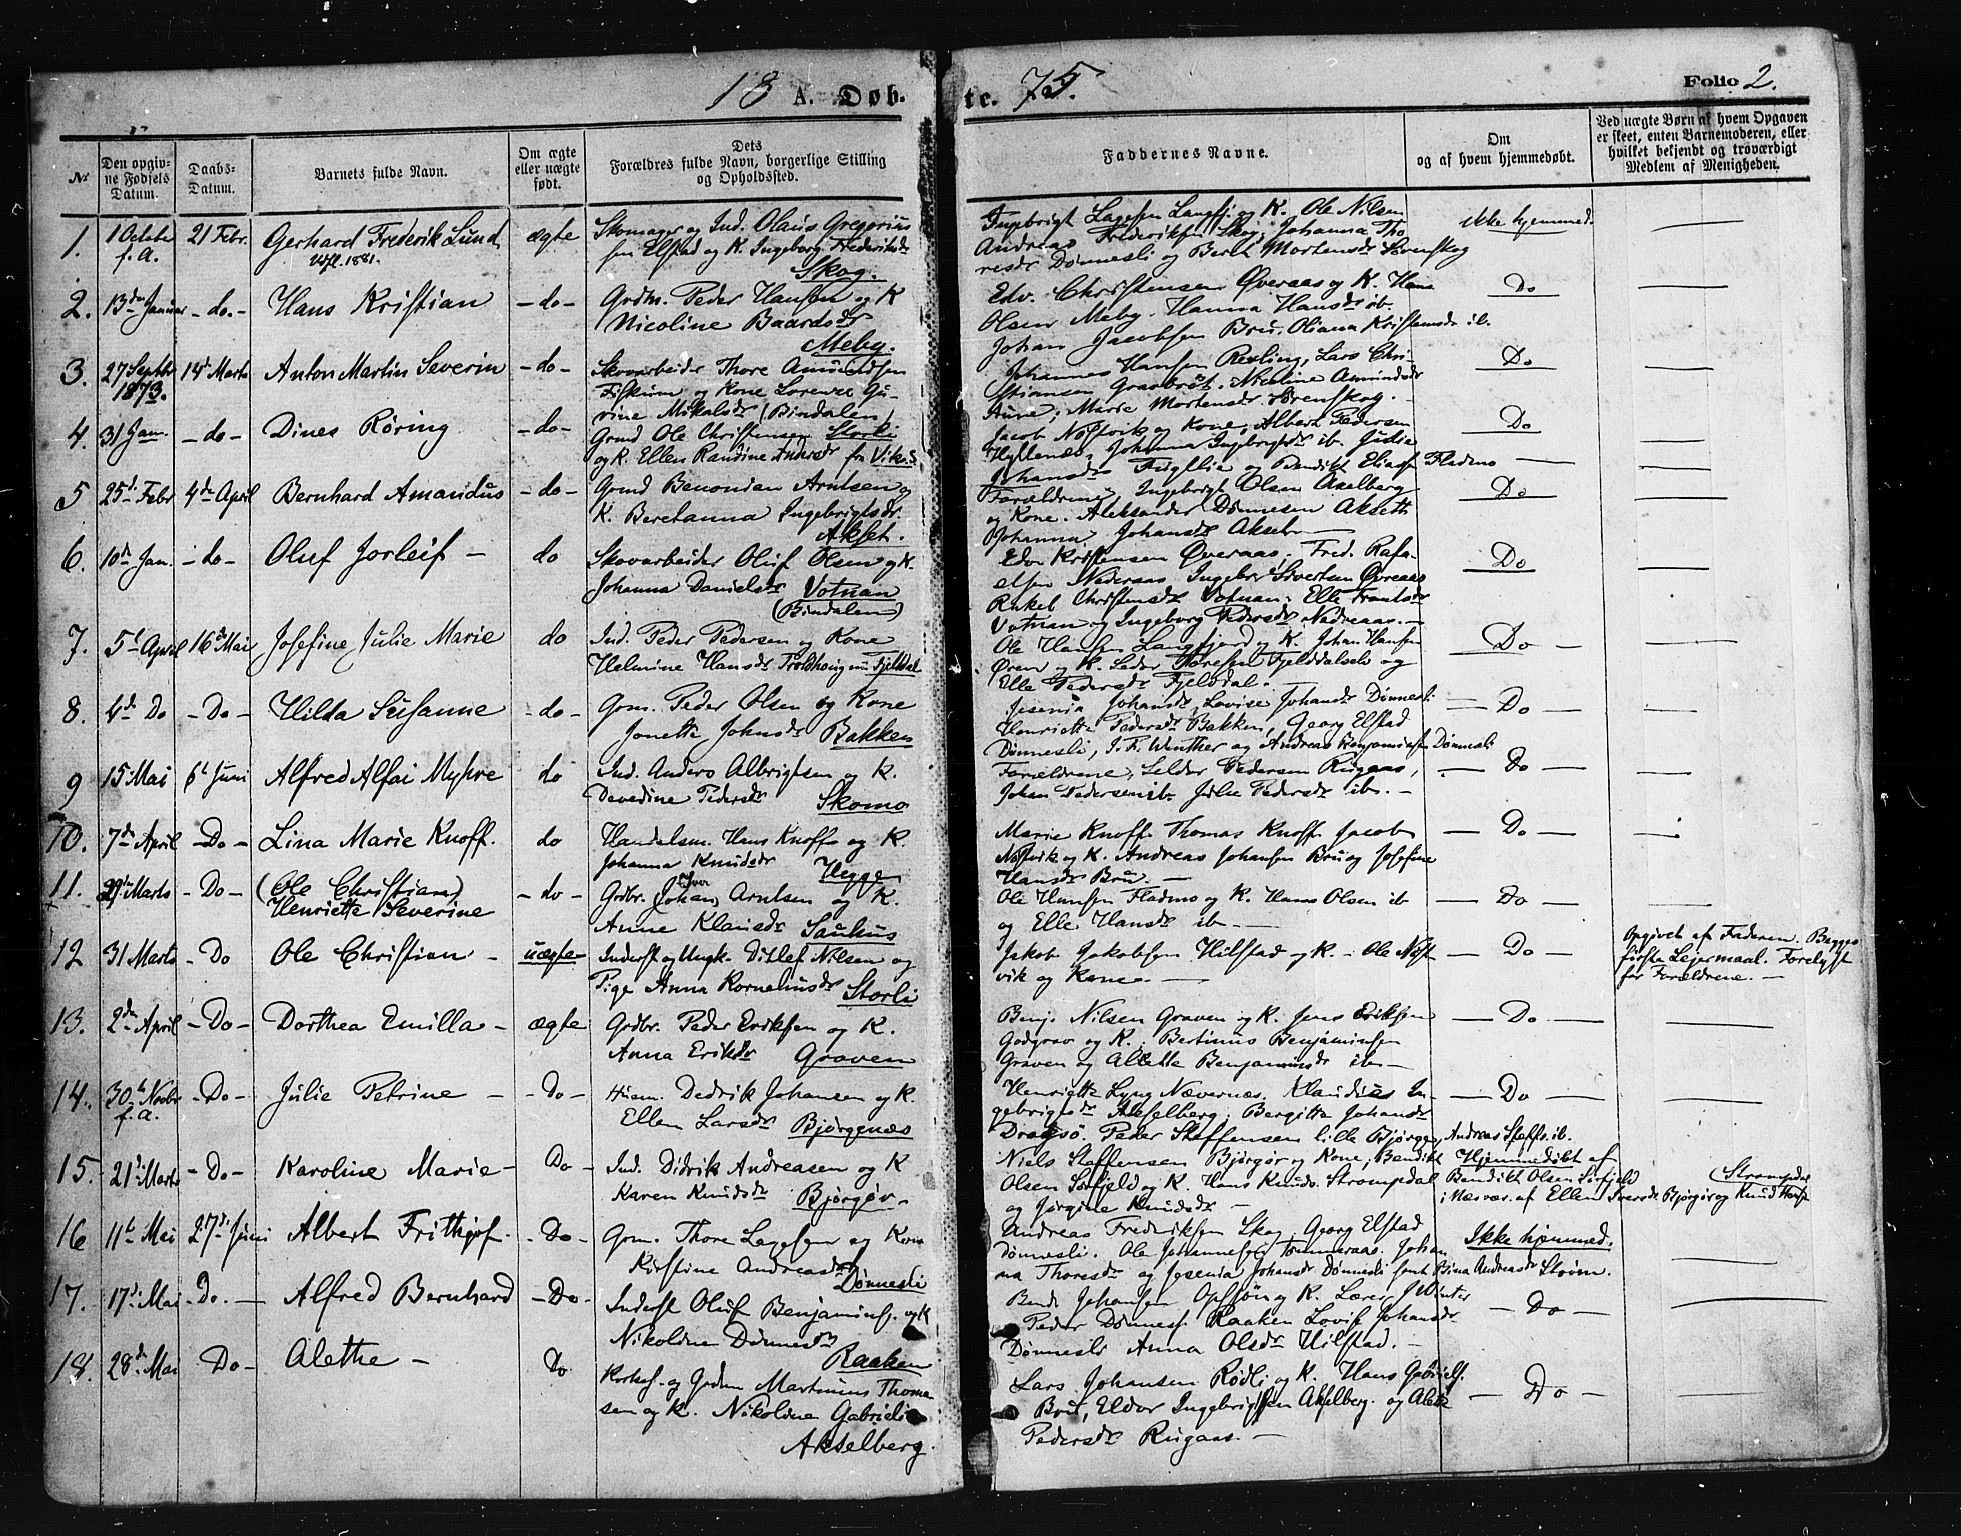 18 A. Døbte. 75.
Folio 2.
№
Den opgivne Fødsels Datum.
Daabs-Datum.
Barnets fulde Navn.
Om ægte eller uægte født.
Dets Forældres fulde Navn, borgerlige Stilling og Opholdssted.
Faddernes Navne.
Om og af hvem hjemmedøbt.
Ved uægte Børn af hvem Opgaven er skeet, enten Barnemoderen, eller hvilket bekjendt og troværdigt Medlem af Menigheden.
1. 1 Octobr f. A. 21 Febr. Gerhard Frederik Lund ægte
Skomager og Ind. Olaus Gregorius
sen Elstad og K. Ingeborg Frederiksdr
Skog.
Ingebrigt Lagesen Langfj. og K. Ole Nilsen
Andreas Frederiksen Skog, Johanna Tho
resdr Dønnesli og Berth Mortensdr Sørenskog
ikke hjemmed.
2. 13de Januar - do. - Hans Kristian - do -
Grdm. Peder Hansen og K
Nicoline Baardsdr
Meby.
Edv. Christensen Øveraas og K. Hans
Olsen Meby. Hanna Hansdr ib.
Johan Jacobsen Bru. Oliana Kristensdr ib.
Do
3. 27 Septbr 1873. 14de Marts Anton Martin Severin - do -
Skovarbeider Thore Amundsen
Fiskum og Kone Lorenze Gu-
rine Mikalsdr (Bindalen)
Johannes Hansen Resling, Lars Chri-
stiansen Graabrøt. Nicoline Amundsdr
Aune, Marie Mortensdr Sørenskog.
Do
4. 31 Jan. - do - Dines Røring - do -
Grmd Ole Christensen Storli
og K. Ellen Randine Andersdr fra Vikn.
Jacob Nøstvik og Kone, Albert Pedersen
Hyllenæs, Johanna Ingebrigtsdr ib. Julie
Johansdr Fuglli og Bendikt Eliasen Fladmo
Do
5 25de Febr 4de April Bernhard Amandus - do -
Grmd Benonien Arntsen og
K. Berethanna Ingebrigtsdr.
Akset.
Forældrene, Ingebrigt Olsen Axelberg
og Kone. Aleksander Dønnesen Aksetli
Johanna Johansdr Akset
Do
6. 10de Jan. - do - Oluf Jorleif - do
Skovarbeider Oluf Olsen og K.
Johanna Danielsdr Votnan
(Bindalen)
Edv Kristensen Øveraas. Fred. Rafa-
elsen Nederaas, Ingebr. Sivertsen Øvreaas
Rakel Christensdr Votnan. Elle Frantsdr
Votnan og Ingeborg Pedersdr Nedreaas.
Do
7. 5te April 16de Mai Josefine Julie Marie do
Ind. Peder Pedersen og Kone
Helmine Hansdr Troldhaugen Fjeldal.
Ole Hansen Langfjord og K. Johan Hansen
Øren og K. Peder Thoresen Fjelddalselv og
Elle Pedersdr Fjeldal.
Do
8. 4de Do - Do - Hilda Susanne - do -
Grm. Peder Olsen og Kone
Jonetta Johnsdr Bakken
Jesenia Johansdr, Lovise Johansdr Dønnesli
Henriette Pedersdr Bakken, Georg Elstad
Dønnesli, J. F. Winther og Andreas Benjaminsen Dønnesli
Do
9 15 Mai 6te Juni Alfred Alfai Myhre do
Ind. Anders Albrigtsen og K.
Devedine Pedersdr Skomo
Forældrene, Peder Pedersen Rugaas,
Johan Pedersen ib. Julie Pedersdr ib. -
Do
10. 7de April - Do - Lina Marie Knoff. do
Handelsm. Hans Knoff og K.
Johanna Knudsdr
Hegge
Marie Knoff Thomas Knoff Jacob
Nøstvik og K. Andreas Johansen Bru og Josefine
Hansdr Bru. -
Do
11. Marts - Do - (Ole Christian)
Henriette Severine - do -
Grdbr. Johan Arntsen og K.
Anne Klausdr Sauhus
Ole Hansen Fladmo og K. Hans Olsen ib
og Elle Hansdr ib -
Do
12 31 Marts - Do Ole Christian - uægte
Inderst og Ungk. Ditlef Nilsen og
Pige Anna Kornelinusdr Storli
Jakob Jakobsen Hilstad og K. - Ole Nøst
vik og Kone -
Do
Opgivet af Faderen. Begges
første Leiermaal. Forelyst
for Forældrene. -
13. 2den April - Do - Dorthea Emilla - ægte
Grdbr. Peder Eriksen og K.
Anna Eriksdr Graven
Benj. Nilsen Graven og K. Jens Eriksen
Godgrav og K. Bertinus Benjaminsen
Graven og Alette Benjaminsdr ib -
Do
14. 30te Novbr f. A. - Do - Julie Petrine - Do -
Husm. Dedrik Johansen og K.
Ellen Larsdr Bjørgenæs
Henriette Lyng Nævernes. Klaudius In-
gebrigtsdr Akselberg, Bergitte Johansdr
Dragsø. Peder Steffensen lille Bjørgø, Andreas Steffs. ib.
Do
15. 21de Marts - Do - Karoline Marie - Do -
Ind. Didrik Andreasen og K
Karen Knudsdr Bjørgøv -
Niels Staffensen Bjørgør og Kone, Bendikt
Olsen Sørfjeld og K. Hans Knuds. Strompdal
og Jørgine Knudsdr -
Hjemmedøbt af
Bendikt Olsen Sørfjeld
i Næsvær af Ellen Svarsdr Bjørgør og Knud Hans
Strompdal
16 11te Mai 27de Juni Albert Frithjof - Do -
Grm. Thore Lagesen og Kone
Kirstine Andreasdr
Dønnesli
Andreas Frederiksen Skog, Georg Elstad
Dønnesli. Ole Johannesen Tømmeraas. Johan
na Thoresdr og Jesenia Johansdr Dønnesli samt Pina Andreasdr Strøm.
Ikke hjemmed.
17. 17de Mai Do. - Alfred Bernhard - Do -
Inderst Oluf Benjamins. og K
Nikoline Dønnesdr
Raaken
Bend. Johansen Opsjøn og K. Lærer J. Winter
Peder Dønnes. Raaken Lovise Johansdr
Dønnesli Anna Olsdr Hilstad. -
Do
18. 28de Mai Do - Alethe - Do
Kirkes. og Grdm Martinus Thoma
sen og K. Nikoline Gabriels
Akselberg.
Lars Johansen Rødli og K. Hans Gabriels.
Brut, Eldor Ingebrigtsen Akselberg. og Alette
Pedersdr Rugaas. -
Do